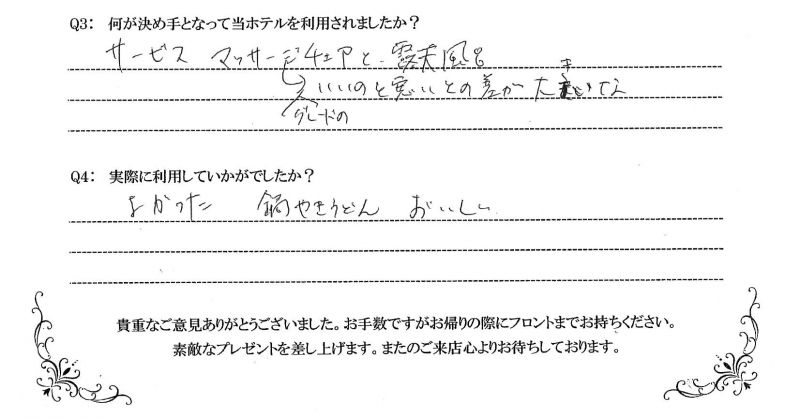 Q3: 何が決め手となって当ホテルを利用されましたか?
サービス マッサージチェアと、露天風呂
いいのと悪いとの差が大きいな
グレードの
Q4: 実際に利用していかがでしたか?
よかった 鍋やきうどん おいしい
貴重なご意見ありがとうございました。お手数ですがお帰りの際にフロントまでお持ちください。
素敵なプレゼントを差し上げます。またのご来店心よりお待ちしております。